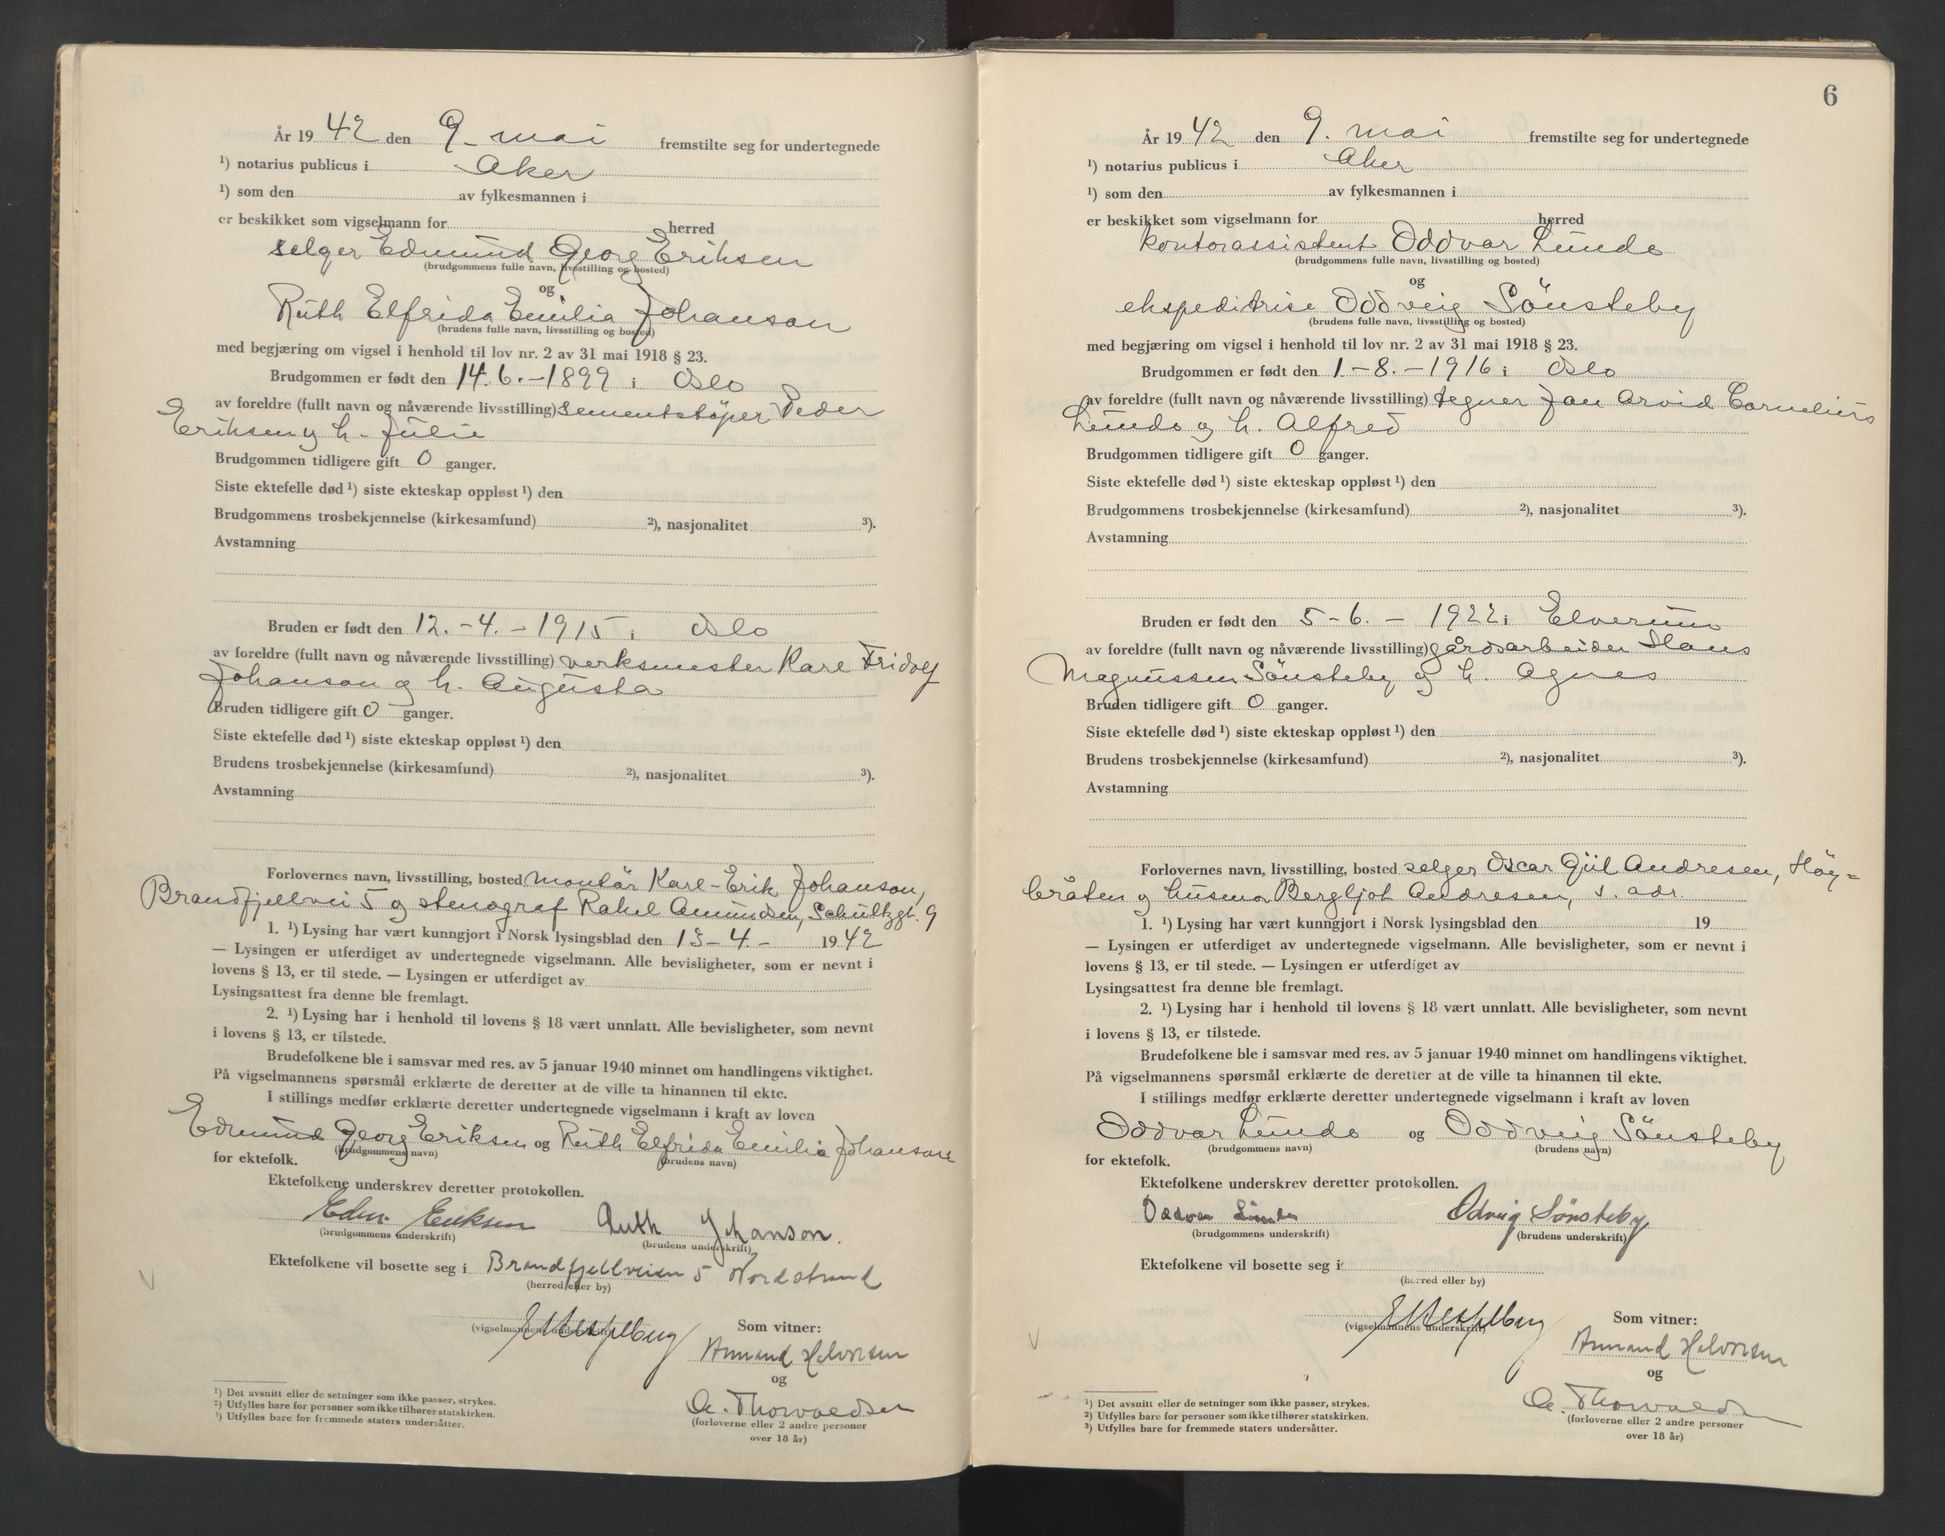 År 1942 den 9. mai fremstilte seg for undertegnede
¹) notarius publicus i Aker
¹) som den av fylkesmannen i
er beskikket som vigselmann for herred
selger Edmund Georg Eriksen
(brudgommens fulle navn, livsstilling og bosted)
og
Ruth Elfrida Emilia Johanson
(brudens fulle navn, livsstilling og bosted)
med begjæring om vigsel i henhold til lov nr. 2 av 31 mai 1918 § 23.
Brudgommen er født den 14. 6. - 1899 i Oslo
av foreldre (fullt navn og nåværende livsstilling) sementstöper Peder
Eriksen og h. Julie
Brudgommen tidligere gift 0 ganger.
Siste ektefelle død ¹) siste ekteskap oppløst ¹) den
Brudgommens trosbekjennelse (kirkesamfund) ²), nasjonalitet ³).
Avstamning
Bruden er født den 12. - 4. - 1915 i Oslo
av foreldre (fullt navn og nåværende livsstilling) verksmester Karl Fridolf
Johanson og h. Augusta
Bruden tidligere gift 0 ganger.
Siste ektefelle død ¹) siste ekteskap oppløst ¹) den
Brudens trosbekjennelse (kirkesamfund) ²), nasjonalitet ³).
Avstamning
Forlovernes navn, livsstilling, bosted montör Karl-Erik Johanson,
Brandfjellvei 5 og stenograf Rakel Amundsen, Schultzgt. 9
1. ¹) Lysing har vært kunngjort i Norsk lysingsblad den 13 - 4 - 1942
— Lysingen er utferdiget av undertegnede vigselmann. Alle bevisligheter, som er nevnt i
lovens § 13, er til stede. — Lysingen er utferdiget av
Lysingsattest fra denne ble fremlagt.
2. ¹) Lysing har i henhold til lovens § 18 vært unnlatt. Alle bevisligheter, som nevnt
i lovens § 13, er tilstede.
Brudefolkene ble i samsvar med res. av 5 januar 1940 minnet om handlingens viktighet.
På vigselmannens spørsmål erklærte de deretter at de ville ta hinannen til ekte.
I stillings medfør erklærte deretter undertegnede vigselmann i kraft av loven
Edmund Georg Eriksen og Ruth Elfrida Emilia Johanson
(brudgommens navn) (brudens navn)
for ektefolk.
Ektefolkene underskrev deretter protokollen.
Edm. Eriksen Ruth Johanson.
(brudgommens underskrift) (brudens underskrift)
Ektefolkene vil bosette seg i Brandfjellveien 5 Nordstrand
(herred eller by)
(vigselmannens underskrift) Som vitner:
Armand Halvorsen
og
A. Thorvaldsen
(forloverne eller 2 andre personer
over 18 år)
¹) Det avsnitt eller de setninger som ikke passer, strykes.
²) Utfylles bare for personer som ikke tilhører statskirken.
³) Utfylles bare for fremmede staters undersåtter.
6
År 1942 den 9. mai fremstilte seg for undertegnede
¹) notarius publicus i Aker
¹) som den av fylkesmannen i
er beskikket som vigselmann for herred
kontorassistent Oddvar Lunde
(brudgommens fulle navn, livsstilling og bosted)
og
ekspeditrise Oddveig Sönsteby
(brudens fulle navn, livsstilling og bosted)
med begjæring om vigsel i henhold til lov nr. 2 av 31 mai 1918 § 23.
Brudgommen er født den 1 - 8. - 1916 i Oslo
av foreldre (fullt navn og nåværende livsstilling) tegner Jan Arvid Cornelius
Lunde og h. Alfred
Brudgommen tidligere gift 0 ganger.
Siste ektefelle død ¹) siste ekteskap oppløst ¹) den
Brudgommens trosbekjennelse (kirkesamfund) ²), nasjonalitet ³).
Avstamning
Bruden er født den 5 - 6. - 1922 i Elverum
av foreldre (fullt navn og nåværende livsstilling) gårdsarbeider Hans
Magnussen Sönsteby og h. Agnes
Bruden tidligere gift 0 ganger.
Siste ektefelle død ¹) siste ekteskap oppløst ¹) den
Brudens trosbekjennelse (kirkesamfund) ²), nasjonalitet ³).
Avstamning
Forlovernes navn, livsstilling, bosted selger Oscar Gül Andresen, Höy=
bråten og husmor Bergljot Andresen, s. adr.
1. ¹) Lysing har vært kunngjort i Norsk lysingsblad den 19
— Lysingen er utferdiget av undertegnede vigselmann. Alle bevisligheter, som er nevnt i
lovens § 13, er til stede. — Lysingen er utferdiget av
Lysingsattest fra denne ble fremlagt.
2. ¹) Lysing har i henhold til lovens § 18 vært unnlatt. Alle bevisligheter, som nevnt
i lovens § 13, er tilstede.
Brudefolkene ble i samsvar med res. av 5 januar 1940 minnet om handlingens viktighet.
På vigselmannens spørsmål erklærte de deretter at de ville ta hinannen til ekte.
I stillings medfør erklærte deretter undertegnede vigselmann i kraft av loven
Oddvar Lunde og Oddveig Sönsteby
(brudgommens navn) (brudens navn)
for ektefolk.
Ektefolkene underskrev deretter protokollen.
Oddvar Lunde Odveig Sønsteby
(brudgommens underskrift) (brudens underskrift)
Ektefolkene vil bosette seg i
(herred eller by)
(vigselmannens underskrift) Som vitner:
Armand Halvorsen
og
A. Thorvaldsen
(forloverne eller 2 andre personer
over 18 år)
¹) Det avsnitt eller de setninger som ikke passer, strykes.
²) Utfylles bare for personer som ikke tilhører statskirken.
³) Utfylles bare for fremmede staters undersåtter.